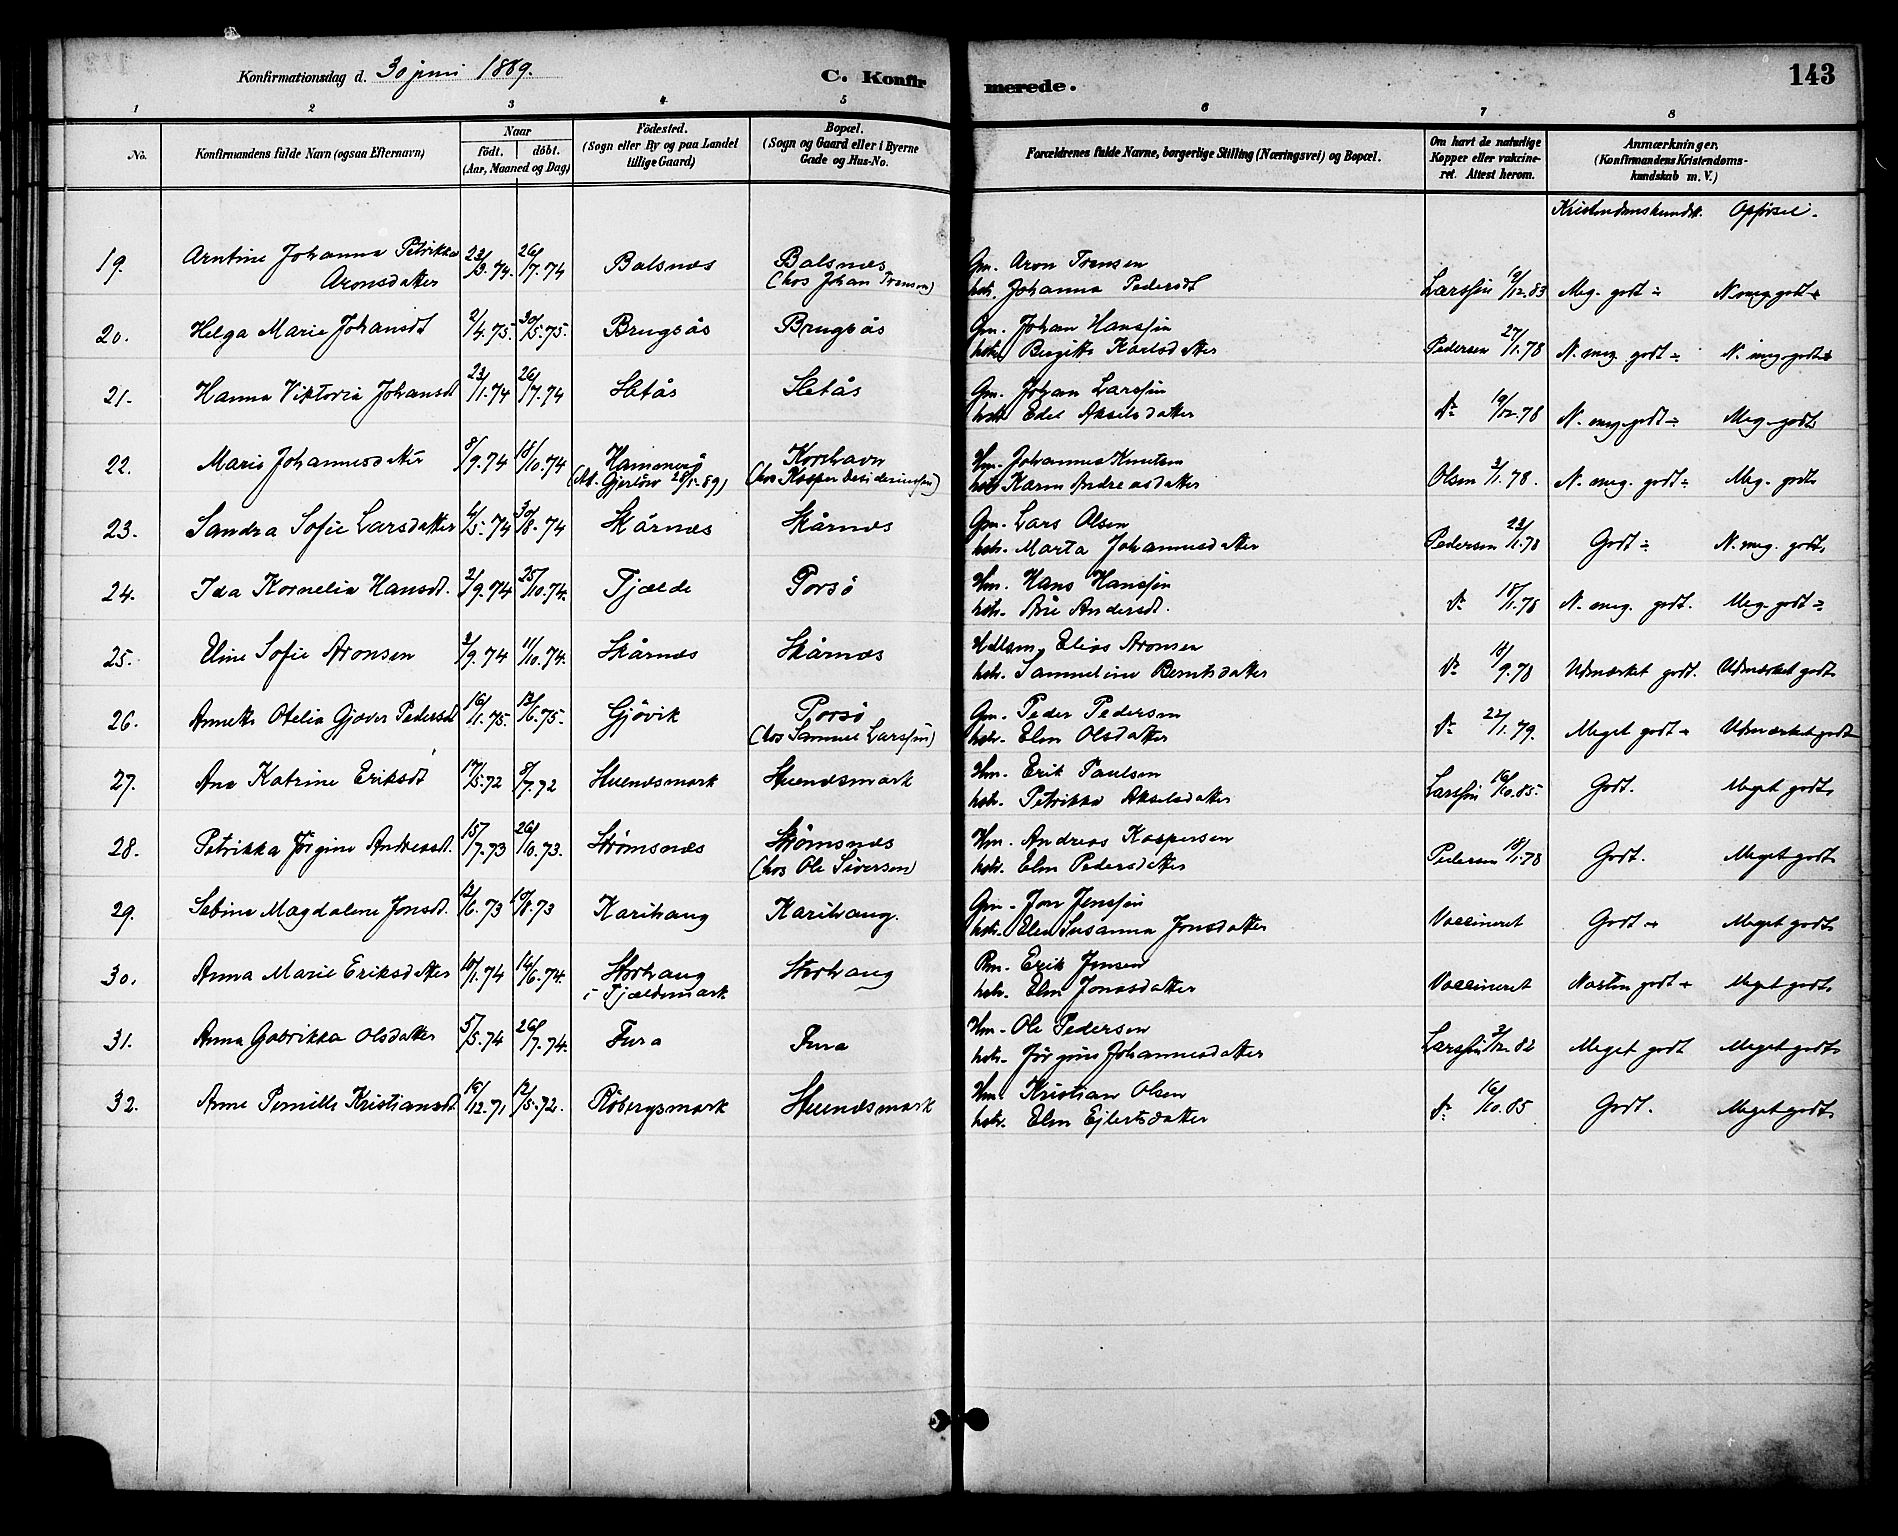 Konfirmationsdag d. 30 juni 1889.
C. Konfir
merede.
143
1 2 3 4 5 6 7 8
No.
Konfirmandens fulde Navn (ogsaa Efternavn)
Naar
födt. döbt.
(Aar, Maaned og Dag)
Födested.
(Sogn eller By og paa Landet
tillige Gaard)
Bopæl.
(Sogn og Gaard eller i Byerne
Gade og Hus-No.
Forældrenes fulde Navne, borgerlige Stilling (Næringsvei) og Bopæl.
Om havt de naturlige
Kopper eller vakcine-
ret. Attest herom.
Anmærkninger.
(Konfirmandens Kristendoms-
kundskab m. V.)
Kristendomskundsk. Opförsel.
19. Arntine Johanna Petrikka 23/3.74. 26/7.74 Balsnæs Balsnæs Gm. Aron Tronsen
Aronsdatter (hos Johan Tronsen) hstr. Johanna Pedersdt Larssen 19/12.83 Meg. godt N. meg. godt
20. Helga Marie Johansdt 2/4.75. 30/5.75. Brugsås Brugsås Gm. Johan Hanssen
hstr. Birgitte Karlsdatter Pedersen 27/1.78 N. meg. godt N. meg. godt
21. Hanna Viktoria Johansdt 23/1.74 26/7.74 Sletås Sletås Gm. Johan Larssen
hstr. Edel Akselsdatter Do 19/12.78 N. meg. godt Meg. godt
22. Marie Johannesdatter 8/9.74 18/10.74 Hammerö Korshavn Hm. Johannes Knutsen
(At. Gjerlöw 28/1-89) (hos Kasper Desideriussen) hstr. Karen Andreasdatter Olsen 3/1.78. N. meg. godt Meg. godt
23. Sandra Sofie Larsdatter 4/5.74 30/8.74 Skårnæs Skårnæs Gm. Lars Olsen
hstr. Marta Johannesdatter Pedersen 23/1.78 Godt N. meg. godt
24. Ida Kornelia Hansdt. 2/9.74 25/10.74. Fjælde Porsö Hm. Hans Hanssen
hstr. Ane Andersdt. Do 18/1.78 N. meg. godt. Meg. godt
25. Eline Sofie Aronsen 3/9.74 11/10.74. Skårnæs Skårnæs Elias Aronsen
hstr. Sammeline Berntsdatter Do 18/9.78 Udmærket godt. Udmærket godt
26. Annette Otelia Gjæver Pedersdt 16/1.75. 13/6.75. Gjövik Porsö Gm. Peder Pedersen
(hos Samuel Larssen) hstr. Elen Olsdatter Do 22/1.79. Meget godt Udmærket godt
27. Ane Katrine Eriksdt 17/5.72 8/7.72 Stuenæsmark Stuenæsmark Hm. Erik Paulsen
hstr. Petrikke Akselsdatter Larssen 16/10.85. Godt. Meget godt
28. Petrikka Jörgine Andreasdt. 15/7.73 26/10.73. Strömsnæs Strömsnæs Hm. Andreas Kaspersen
(hos Ole Siversen) hstr. Elen Pedersdatter Pedersen 18/1.78 Godt. Meget godt
29. Sabine Magdalene Jonsdt. 12/6.73 10/8.73 Karihaug Karihaug. Gm. Jon Jenssen
hstr. Elen Susanna Jonsdatter Vaccineret Godt Meget godt
30. Anna Marie Eriksdatter 10/1.74 14/6.74. Storhaug Storhaug Rm. Erik Jensen
i Fjældsmark hstr. Elen Jonasdatter Vaccineret Næsten godt Meget godt
31. Anna Gabrikka Olsdatter 5/5.74 26/7.74. Fura Fura Hm. Ole Pedersen
hstr. Jörgine Johannesdatter Larssen 3/12.82 Meget godt Meget godt
32. Anne Pernille Kristiansdt 19/12.71 12/5.72. Röbergsmark Stuenæsmark Hm. Kristian Olsen
hstr. Elen Ejlertsdatter Do 16/10.85 Godt. Meget godt